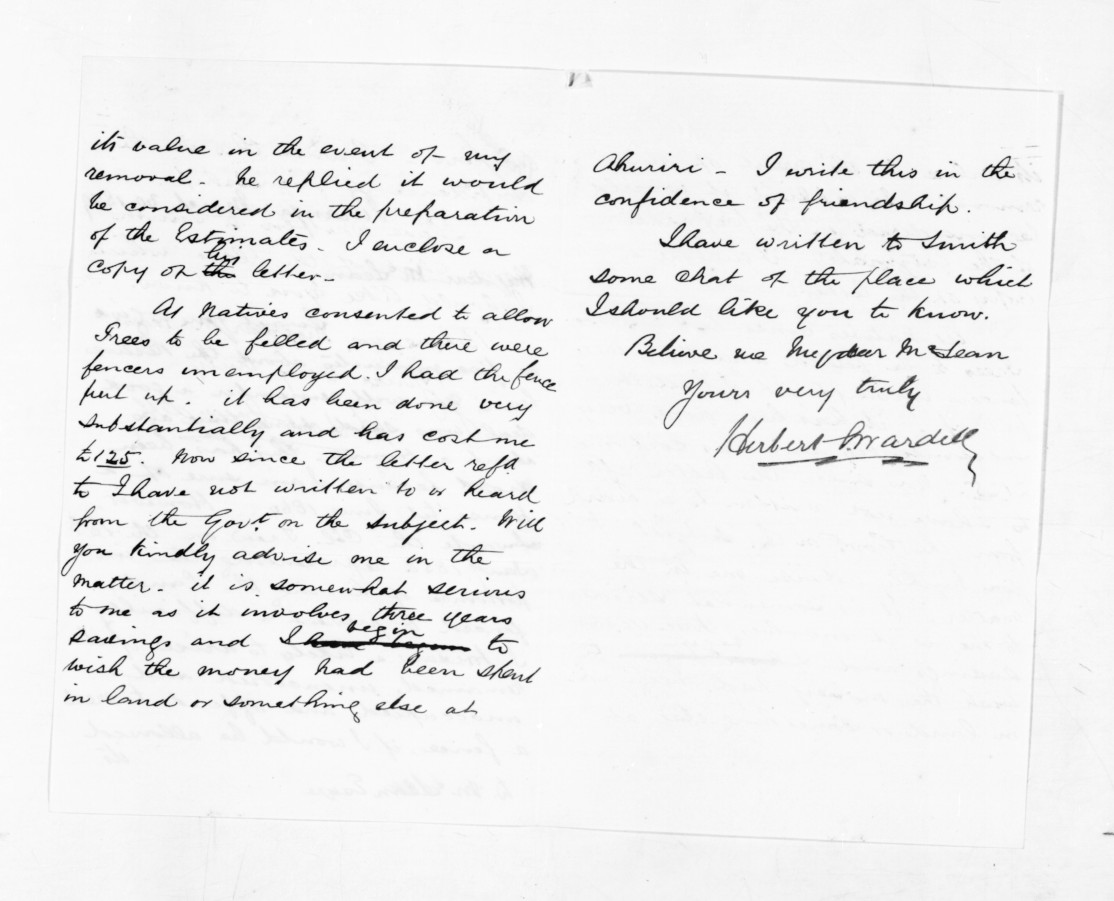 its value in the event of my
removal - he replied it would
be considered in the preparation
of the Estimates - I enclose a
copy of his letter -
As Natives consented to allow
Trees to be felled and there were
fencers unemployed I had the fence
put up. it has been done very
substantially and has cost me
£125. Now since the letter refd
to I have not written to or heard
from the Govt. on the subject. Will
you kindly advise me in the
matter - it is somewhat serious
to me as it involves three years
savings and I begin to
wish the money had been spent
in land or something else at
Ahuriri - I write this in the
confidence of friendship.
I have written to Smith
some chat of the place which
I should like you to know.
Believe me My dear McLean
Yours very truly
Herbert S. Wardell